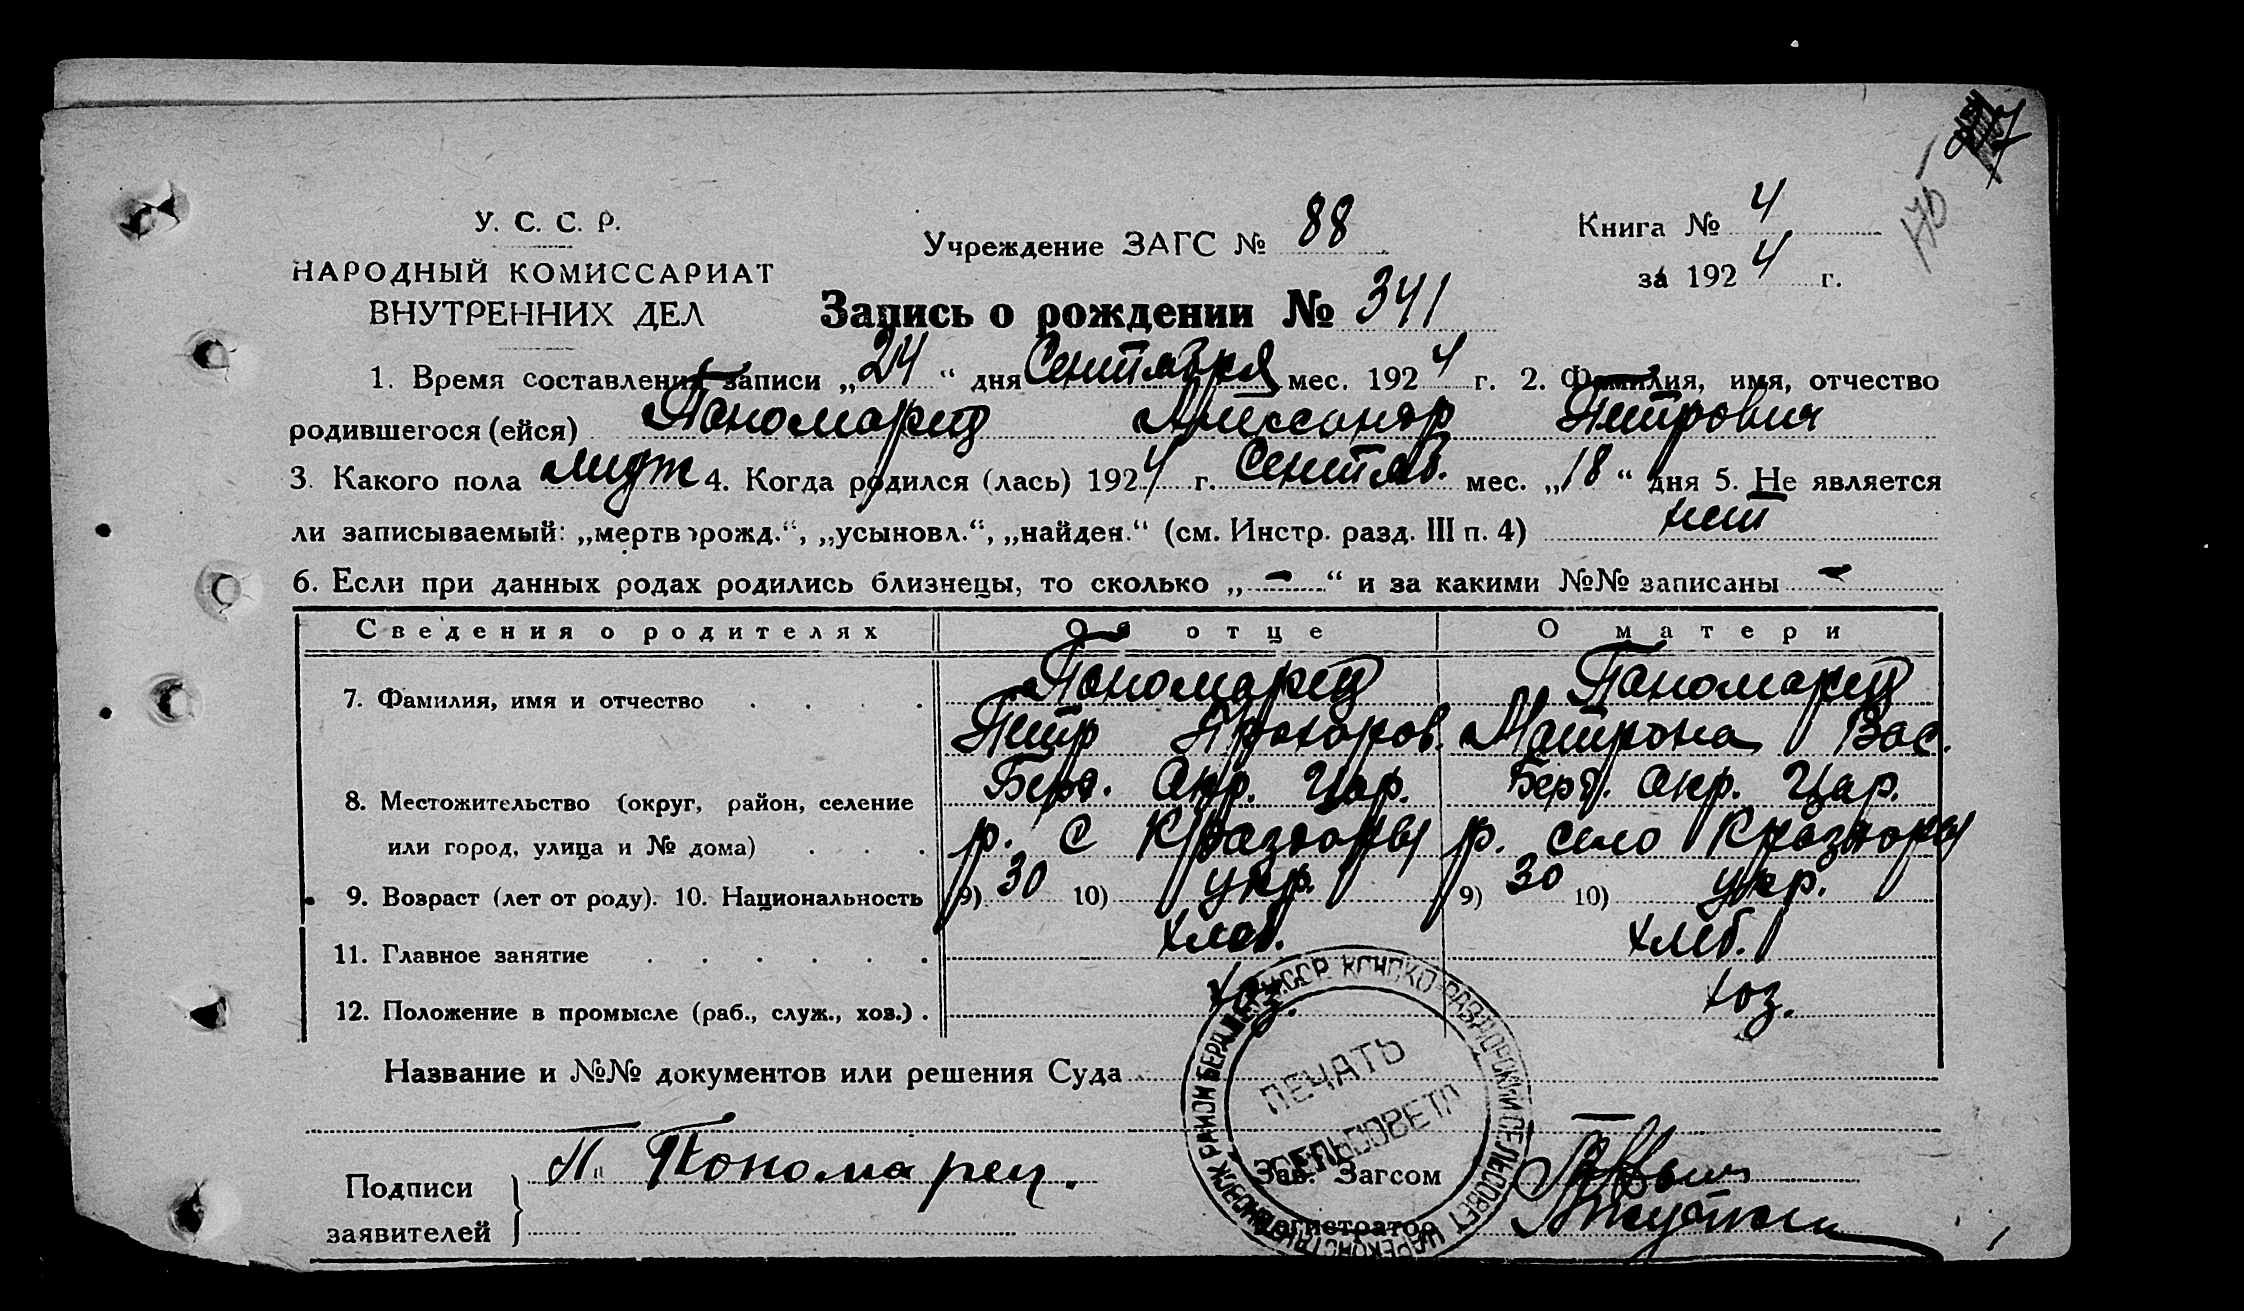 У. С. С. Р.
НАРОДНЫЙ КОМИССАРИАТ
ВНУТРЕННИХ ДЕЛ
Учреждение ЗАГС № 88
Книга № 4
за 1924 г.
170
Запись о рождении № 341
1. Время составления записи „24“ дня Сентября мес. 1924 г. 2. Фамилия, имя, отчество
родившегося (ейся) Паномарец Алессандр Петрович
3. Какого пола мудж 4. Когда родился (лась) 1924 г. Сентяб. мес. „18“ дня 5. Не является
ли записываемый: „мертворожд.“, „усыновл.“, „найден.“ (см. Инстр. разд. III п. 4) нет
6. Если при данных родах родились близнецы, то сколько „-“ и за какими №№ записаны -
Сведения о родителях Об отце О матери
7. Фамилия, имя и отчество . . . . Паномарец Паномарец
Петр Прохоров. Матрона Вас.
8. Местожительство (округ, район, селение Берд. Окр. Цар. Берд. Окр. Цар.
или город, улица и № дома) . . . р. с Кразторы р. село Кразторы
9. Возраст (лет от роду). 10. Национальность 9) 30 10) укр. 9) 30 10) укр.
11. Главное занятие . . . . . . хлеб. хлеб.
12. Положение в промысле (раб., служ., хоз.) . хоз. хоз.
Название и №№ документов или решения Суда
ПЕЧАТЬ
СЕЛЬСОВЕТА
УССР КОНСКО-РАЗДОРСКИЙ СЕЛЬСОВЕТ ЦАРЕКОНСТАНТИНОВСК РАЙОН БЕРДЯНСК
Подписи
заявителей
П. Пономарец.
Зав. Загсом
Регистратор